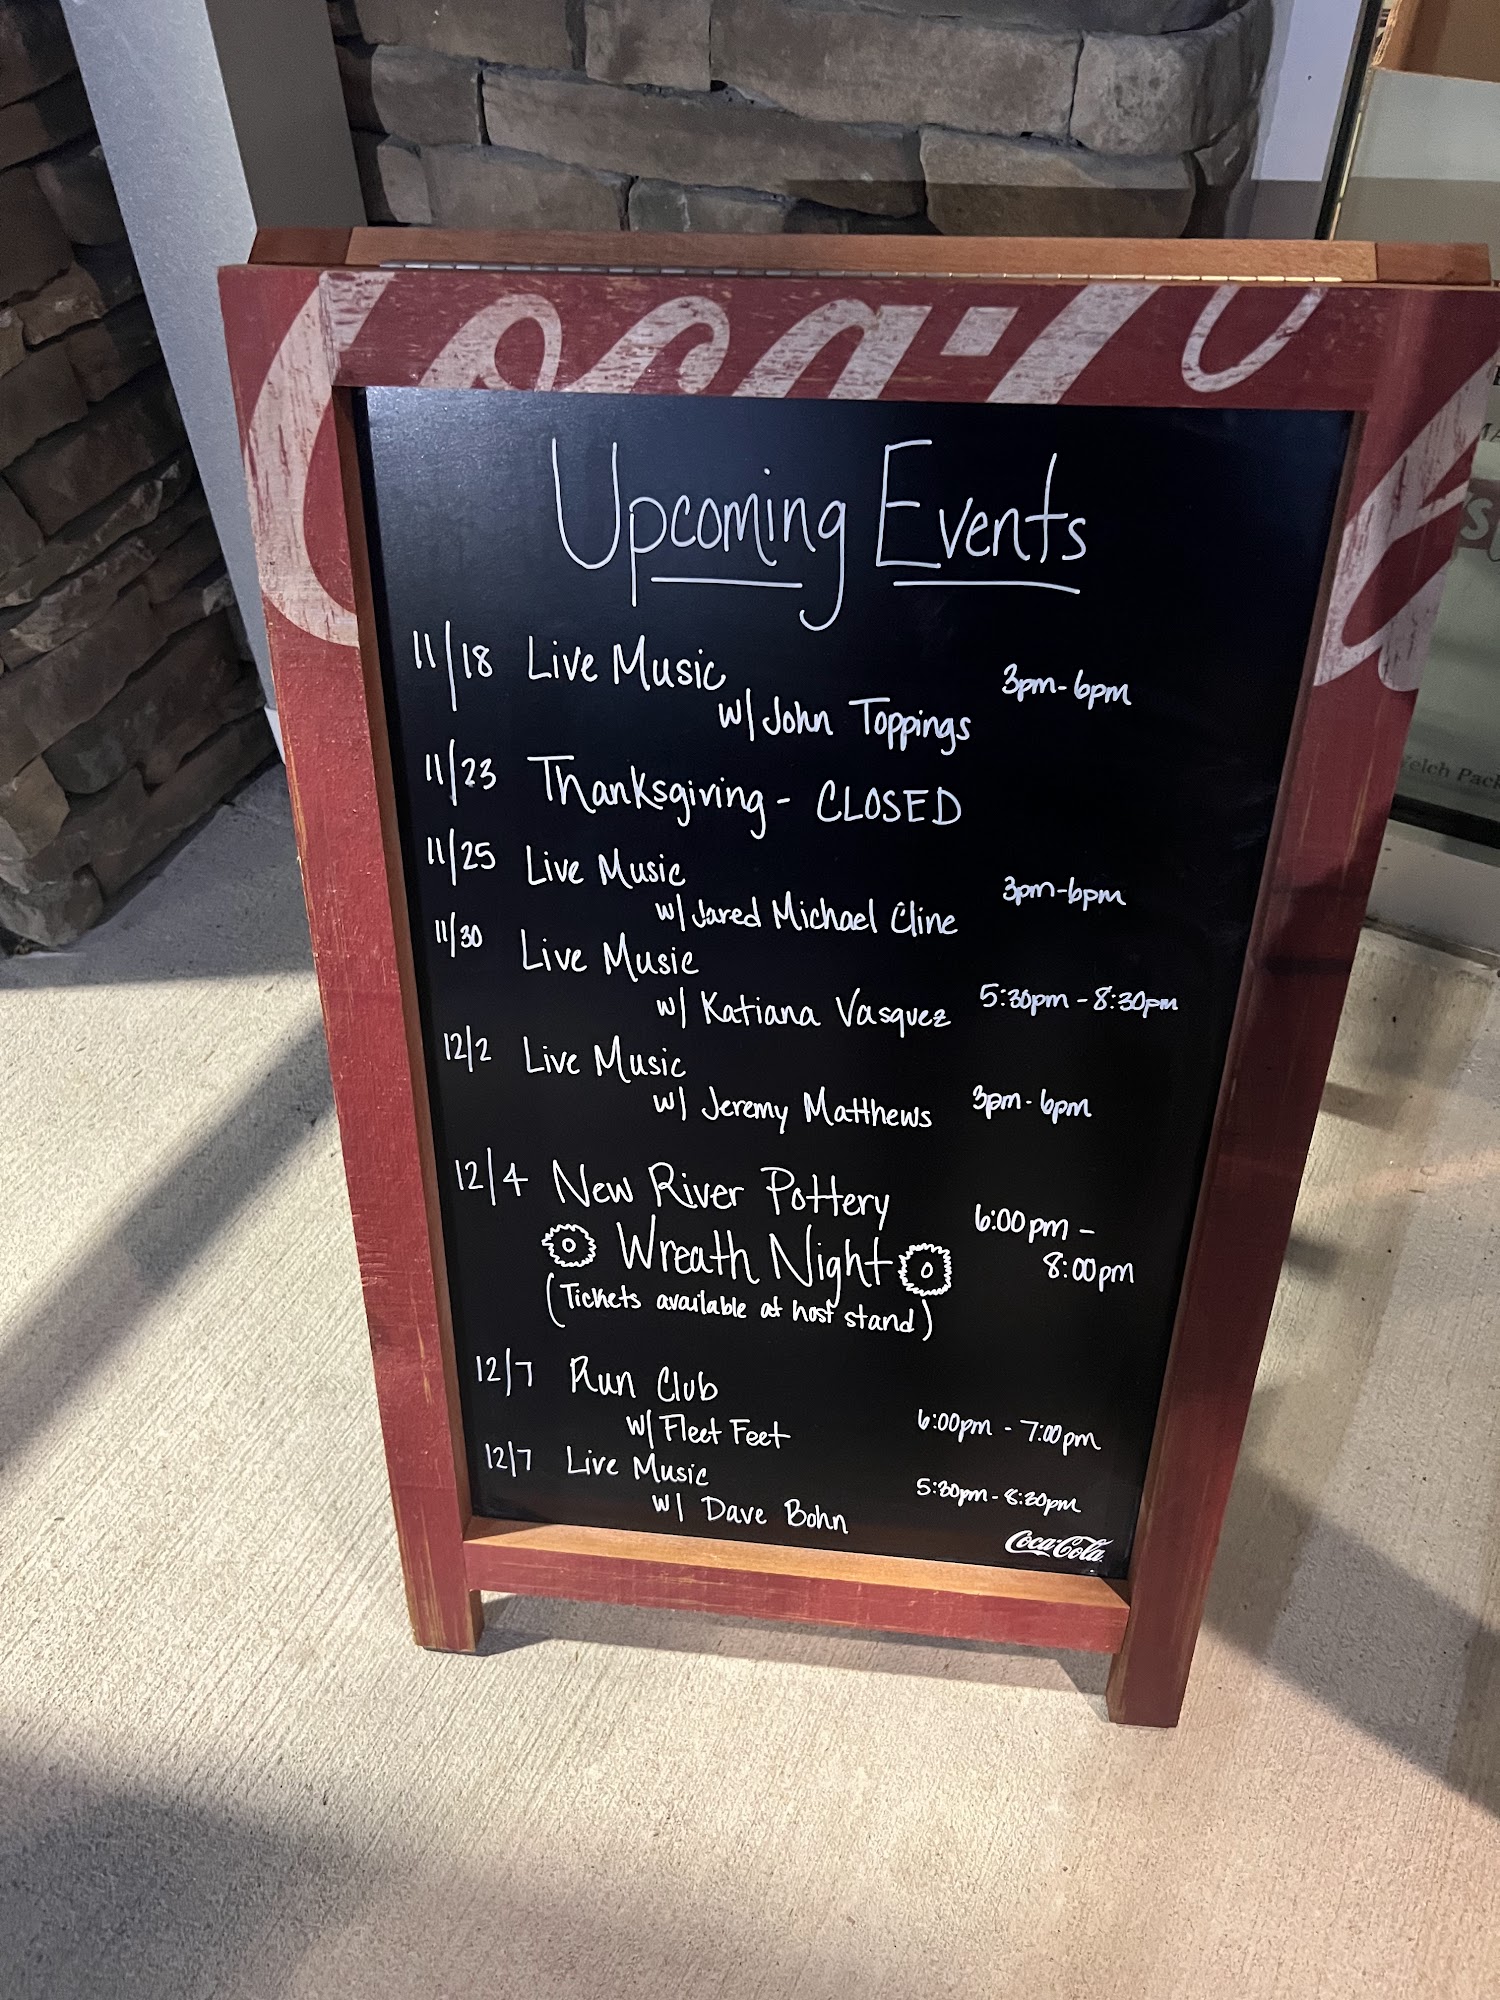 Coca-Co
Upcoming Events
11/18 Live Music
w/ John Toppings 3pm-6pm
11/23 Thanksgiving - CLOSED
11/25 Live Music
w/ Jared Michael Cline 3pm-6pm
11/30 Live Music
w/ Katiana Vasquez 5:30pm - 8:30pm
12/2 Live Music
w/ Jeremy Matthews 3pm-6pm
12/4 New River Pottery
Wreath Night 6:00pm - 8:00pm
(Tickets available at host stand)
12/7 Run Club
w/ Fleet Feet 6:00pm - 7:00pm
12/7 Live Music
w/ Dave Bohn 5:30pm - 8:30pm
Coca-Cola